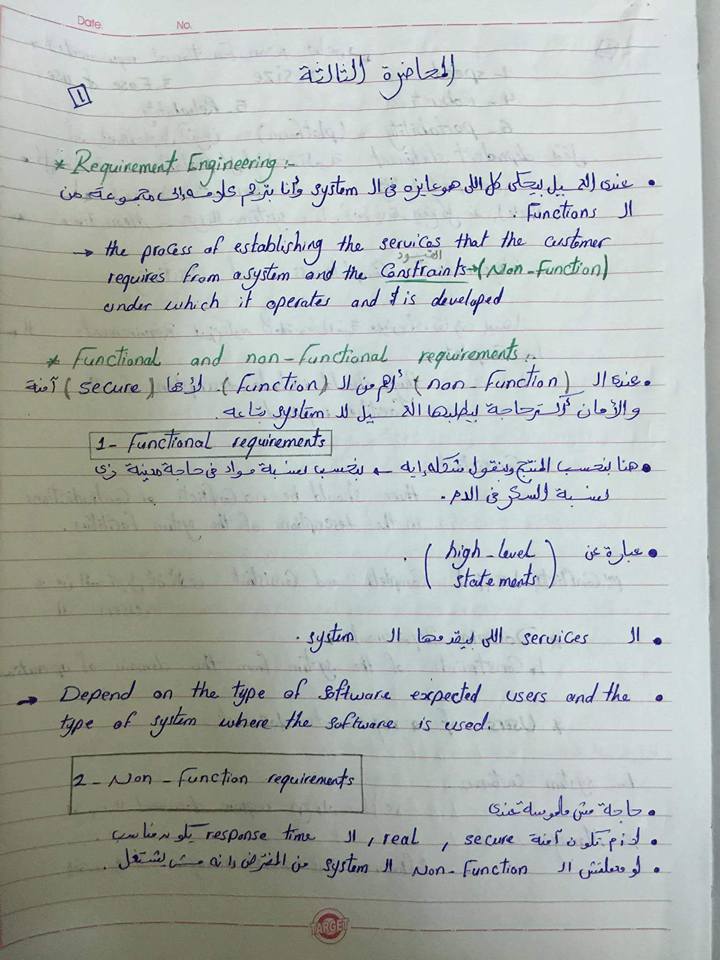 Date. No.
المحاضرة الثالثة
1
* Requirement Engineering :-
• عندى الـ عميل بيحكى كل اللى هو عايزه فى الـ system وأنا بترجم كلامه إلى مجموعة من
الـ Functions .
→ the process of establishing the services that the customer
القيود
requires from a system and the Constraints → (Non-Function)
under which it operates and is developed
* Functional and non-Functional requirements :.
• عندى الـ (non-Function) أهم من الـ (Function) لأنها (secure) آمنة
والأمان أكتر حاجة بيطلبها الـ عميل للـ system بتاعه .
1- Functional requirements
• هنا بنحسب المنتج وبنقول شكله إيه بنحسب نسبة مواد فى حاجة معينة زى
نسبة السكر فى الدم .
• عبارة عن (high-level
statements) .
• الـ services اللى بيقدمها الـ system .
→ Depend on the type of software expected users and the •
type of system where the software is used.
2- Non-Function requirements
• حاجة مش ملموسة عندى
• لازم تكون آمنة secure , real , الـ response time يكون مناسب
• لو معملتش الـ Non-Function الـ system من المفترض انه مش يشتغل .
TARGET